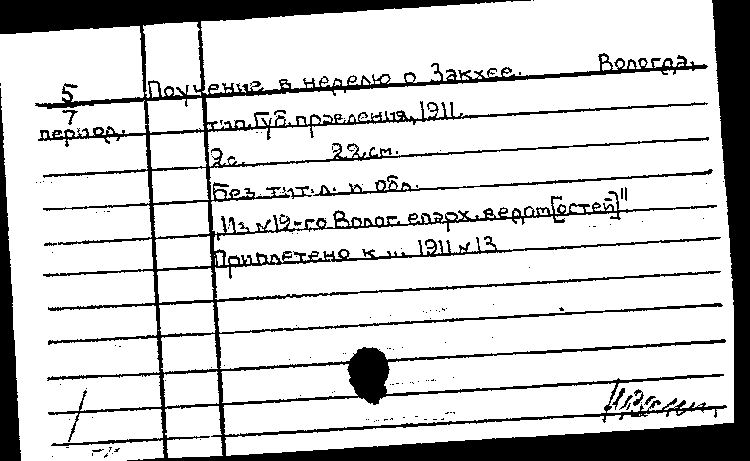 5
7
период.
Поучение в неделю о Закхее. Вологда,
тип. Губ. правления, 1911.
2 с. 22 см.
Без тит. л. и обл.
„Из №12-го Волог. епарх. ведом[остей]"
Приплетено к ... 1911 №13